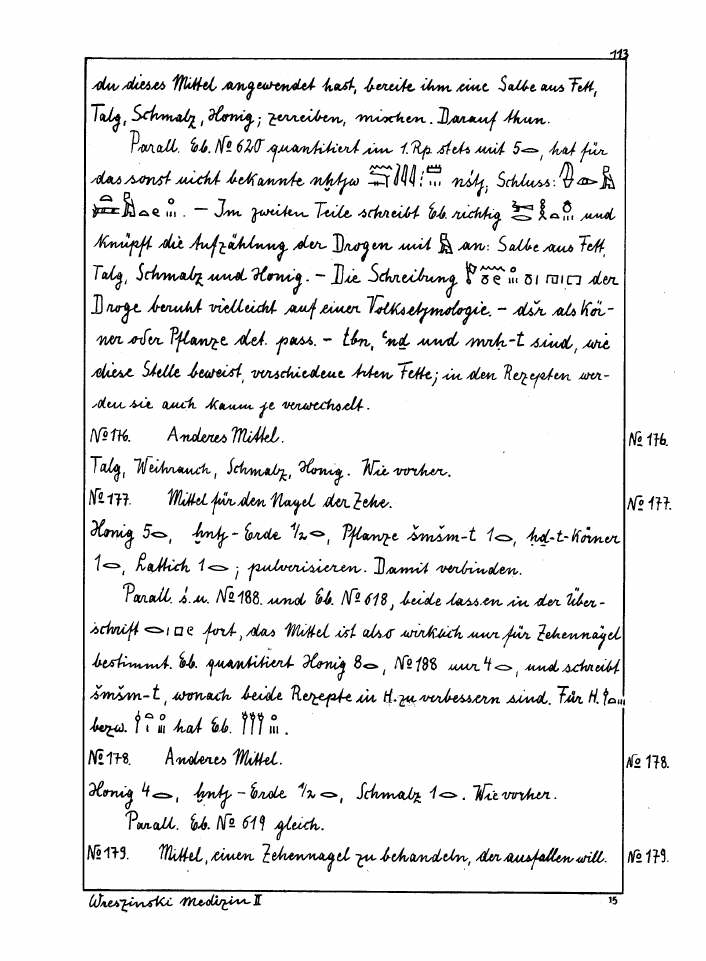 113
du dieses Mittel angewendet hast, bereite ihm eine Salbe aus Fett,
Talg, Schmalz, Honig; zerreiben, mischen. Darauf thun.
Parall. Eb. № 620 quantitiert im 1. Rp stets mit 5𓂋, hat für
das sonst nicht bekannte nḫtjw nśtj; Schluss:
. — Im zweiten Teile schreibt Eb. richtig und
knüpft die Aufzählung der Drogen mit 𓀀 an: Salbe aus Fett,
Talg, Schmalz und Honig. — Die Schreibung der
Droge beruht vielleicht auf einer Volksetymologie. — dšr als Kör-
ner oder Pflanze det. pass. — tbn, ꜥnḏ und mrḥ-t sind, wie
diese Stelle beweist, verschiedene Arten Fette; in den Rezepten wer-
den sie auch kaum je verwechselt.
№ 176. Anderes Mittel. № 176.
Talg, Weihrauch, Schmalz, Honig. Wie vorher.
№ 177. Mittel für den Nagel der Zehe. № 177.
Honig 5𓂋, ḫntj-Erde 1/2𓂋, Pflanze šmšm-t 1𓂋, ḥḏ-t-Körner
1𓂋, Lattich 1𓂋; pulverisieren. Damit verbinden.
Parall. s. u. № 188. und Eb. № 618, beide lassen in der Über-
schrift 𓂋𓏤𓊪𓅱 fort, das Mittel ist also wirklich nur für Zehennägel
bestimmt. Eb. quantitiert Honig 8𓂋, № 188 nur 4𓂋, und schreibt
šmšm-t, wonach beide Rezepte in H. zu verbessern sind. Für H.
bezw. hat Eb. .
№ 178. Anderes Mittel. № 178.
Honig 4𓂋, ḫntj-Erde 1/2𓂋, Schmalz 1𓂋. Wie vorher.
Parall. Eb. № 619 gleich.
№ 179. Mittel, einen Zehennagel zu behandeln, der ausfallen will. № 179.
Wreszinski Medizin II 15